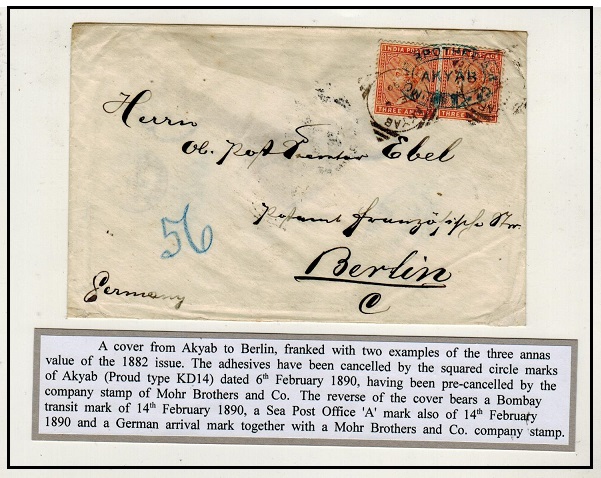 INDIA POSTAGE
THREE ANNAS
THREE
AKYAB
Herrn
Ob. Post Ebel
Postamt französische Str.
Berlin
C
56
Germany
A cover from Akyab to Berlin, franked with two examples of the three annas
value of the 1882 issue. The adhesives have been cancelled by the squared circle marks
of Akyab (Proud type KD14) dated 6th February 1890, having been pre-cancelled by the
company stamp of Mohr Brothers and Co. The reverse of the cover bears a Bombay
transit mark of 14th February 1890, a Sea Post Office 'A' mark also of 14th February
1890 and a German arrival mark together with a Mohr Brothers and Co. company stamp.